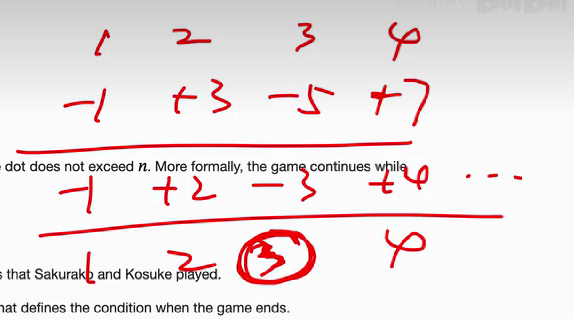 1 2 3 4
-1 +3 -5 +7
e dot does not exceed n. More formally, the game continues while
-1 +2 -3 +4 ...
1 2 3 4
s that Sakurako and Kosuke played.
hat defines the condition when the game ends.